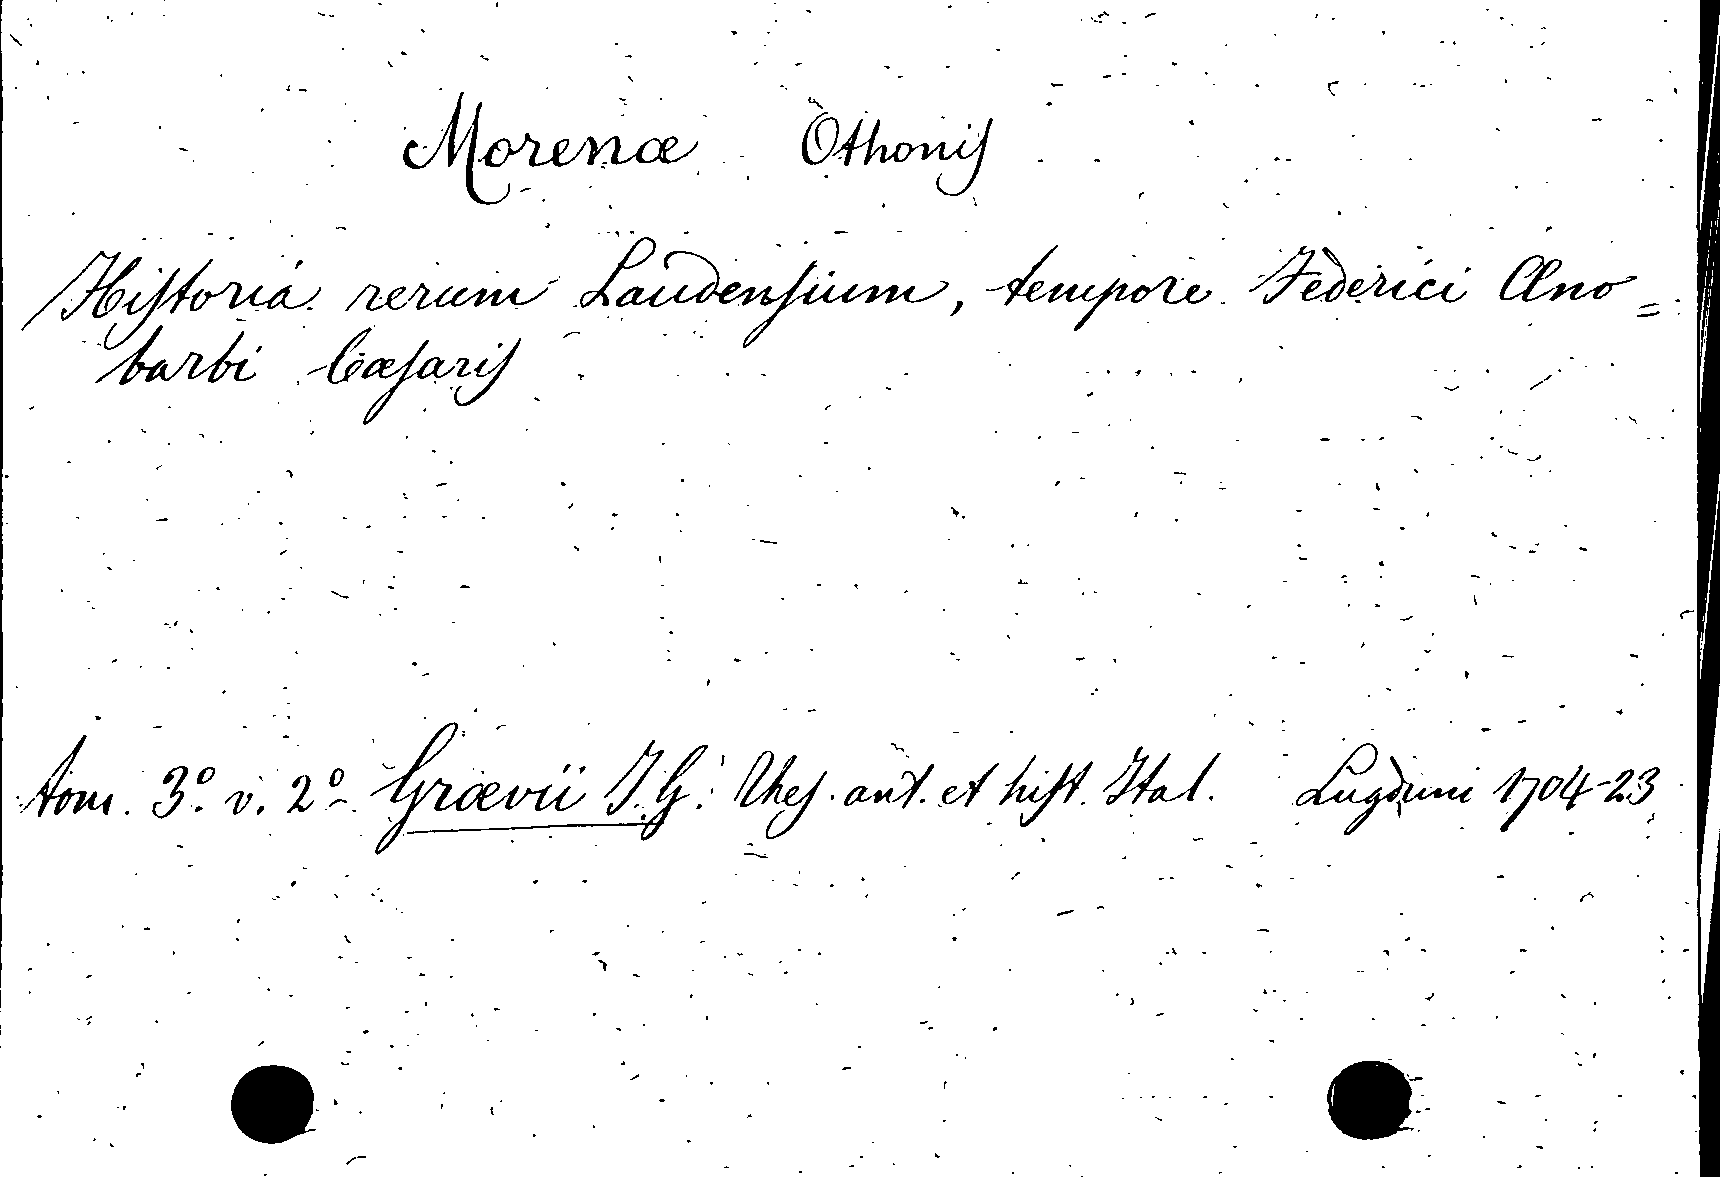 Morenæ Othonis
Historia rerum Laudensium, tempore Federici Æno=
barbi Cæsaris
tom. 3º. v. 2º. Grævii J. G. Thes. ant. et hist. Ital. Lugduni 1704-23